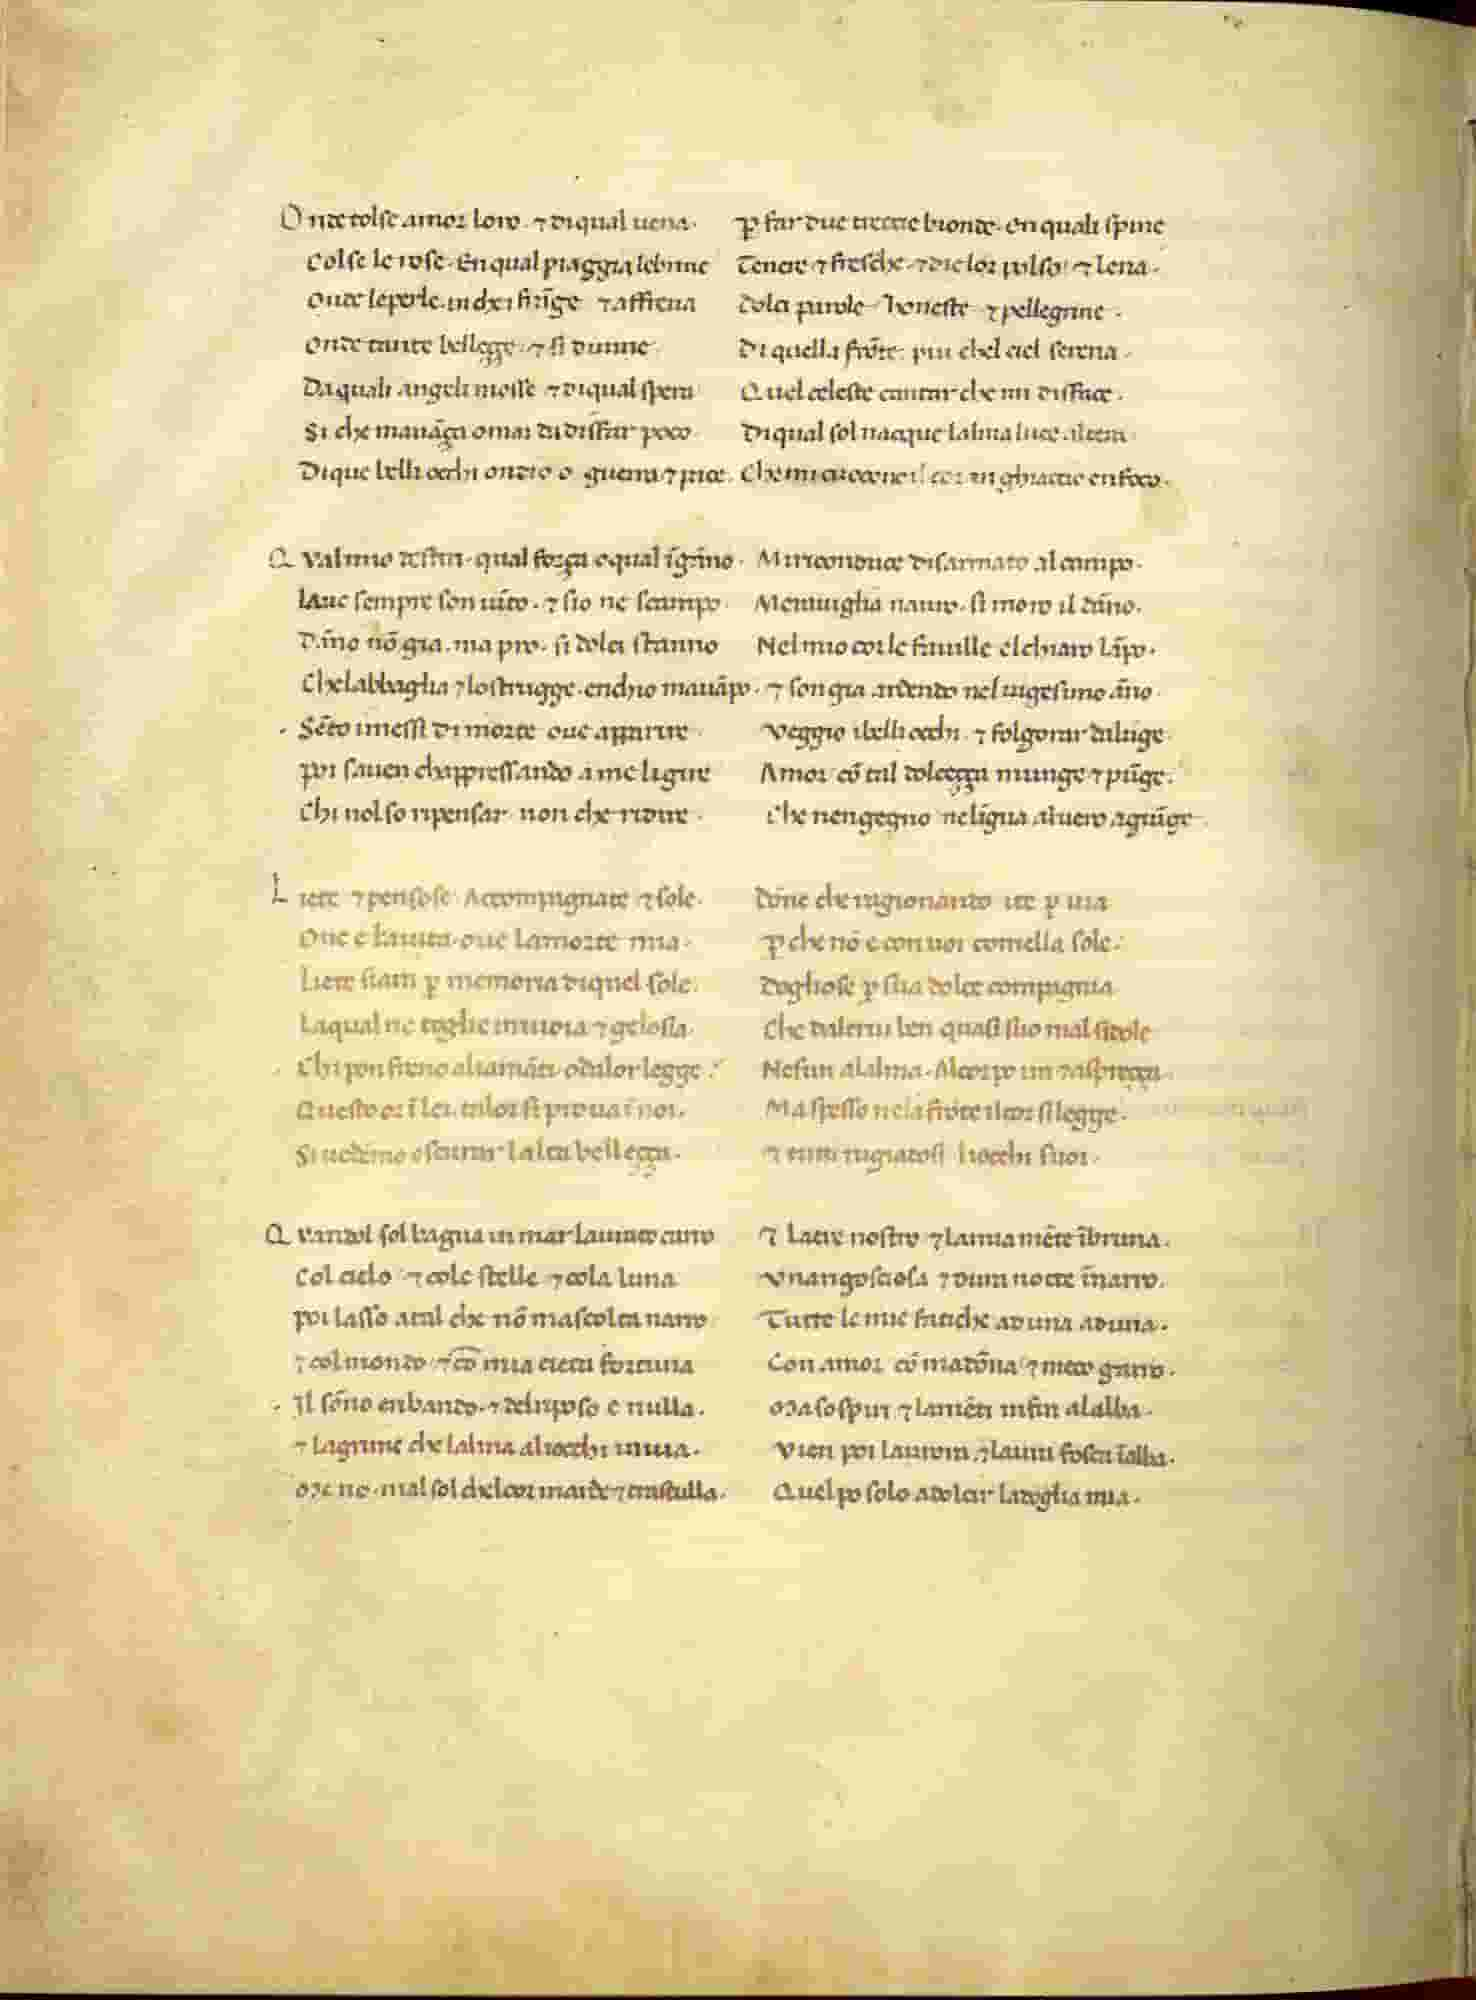 Onde tolse amor loro. ⁊ di qual uena. ꝑ far due treccie bionde. en quali spine
Colse le rose. En qual piaggia le brine Tenere ⁊ fresche. ⁊ die lor polso. ⁊ lena.
Onde le perle. in chei frāge ⁊ affrena Dolci parole honeste ⁊ pellegrine.
Onde tante belleççe. ⁊ si diuine Di quella frōte. piu chel ciel serena.
Da quali angeli mosse ⁊ di qual spera Quel celeste cantar che mi disface.
Si che mauāça omai di disfar poco Di qual sol nacque lalma luce altera
Di que belli occhi ondio o guerra ⁊ pace. Che mi cuocono il cor in ghiaccio en foco.
Qual mio destin. qual força o qual īgāno. Mi riconduce disarmato al campo.
Laue sempre son uīto. ⁊ sio ne scampo Merauiglia nauro. si moro il dāno.
Dāno nō gia. ma pro. si dolci stanno Nel mio cor le fauille el chiaro lāpo.
Che labbaglia ⁊ lo strugge. enchio mauāpo. ⁊ son gia ardendo nel uigesimo āno.
Sēto i messi di morte oue apparire Veggio i belli occhi. ⁊ folgorar da lūge.
poi sauen chappressando a me li gire Amor cō tal dolceçça munge ⁊ pūge.
Chi nol so ripensar non che ridire. Che nengegno ne līgua al uero agiūge
Liete ⁊ pensose Accompagnate ⁊ sole. Dōne che ragionando ite ꝑ uia
Oue e la uita. oue la morte mia. ꝑche nō e con uoi comella sole.
Liete siam ꝑ memoria di quel sole. Dogliose ꝑ sua dolce compagnia
La qual ne toglie inuidia ⁊ gelosia. Che daltrui ben quasi suo mal si dole
Chi pon freno a li amāti. o da lor legge. Nesun a lalma. Al corpo ira ⁊ aspreçça.
Questo or ī lei. talor si proua ī noi. Ma spesso ne la frōte il cor si legge.
Si uedēmo oscurar lalta belleçça. ⁊ tutti rugiadosi li occhi suoi.
Quandol sol bagna in mar laurato carro ⁊ laere nostro ⁊ la mia mēte ībruna.
Col cielo ⁊ co le stelle ⁊ co la luna Vnangosciosa ⁊ dura nocte īnarro.
poi lasso a tal che nō mascolta narro Tutte le mie fatiche ad una ad una.
⁊ col mondo ⁊ cō mia cieca fortuna Con amor cō madōna ⁊ meco garro.
Il sōno e nbando. ⁊ del riposo e nulla. Ma sospiri ⁊ lamēti infin a lalba.
⁊ lagrime che lalma a li occhi inuia. Vien poi laurora. ⁊ laura fosca īalba.
Me no. mal sol chel cor marde ⁊ trastulla. Quel po solo adolcir la doglia mia.